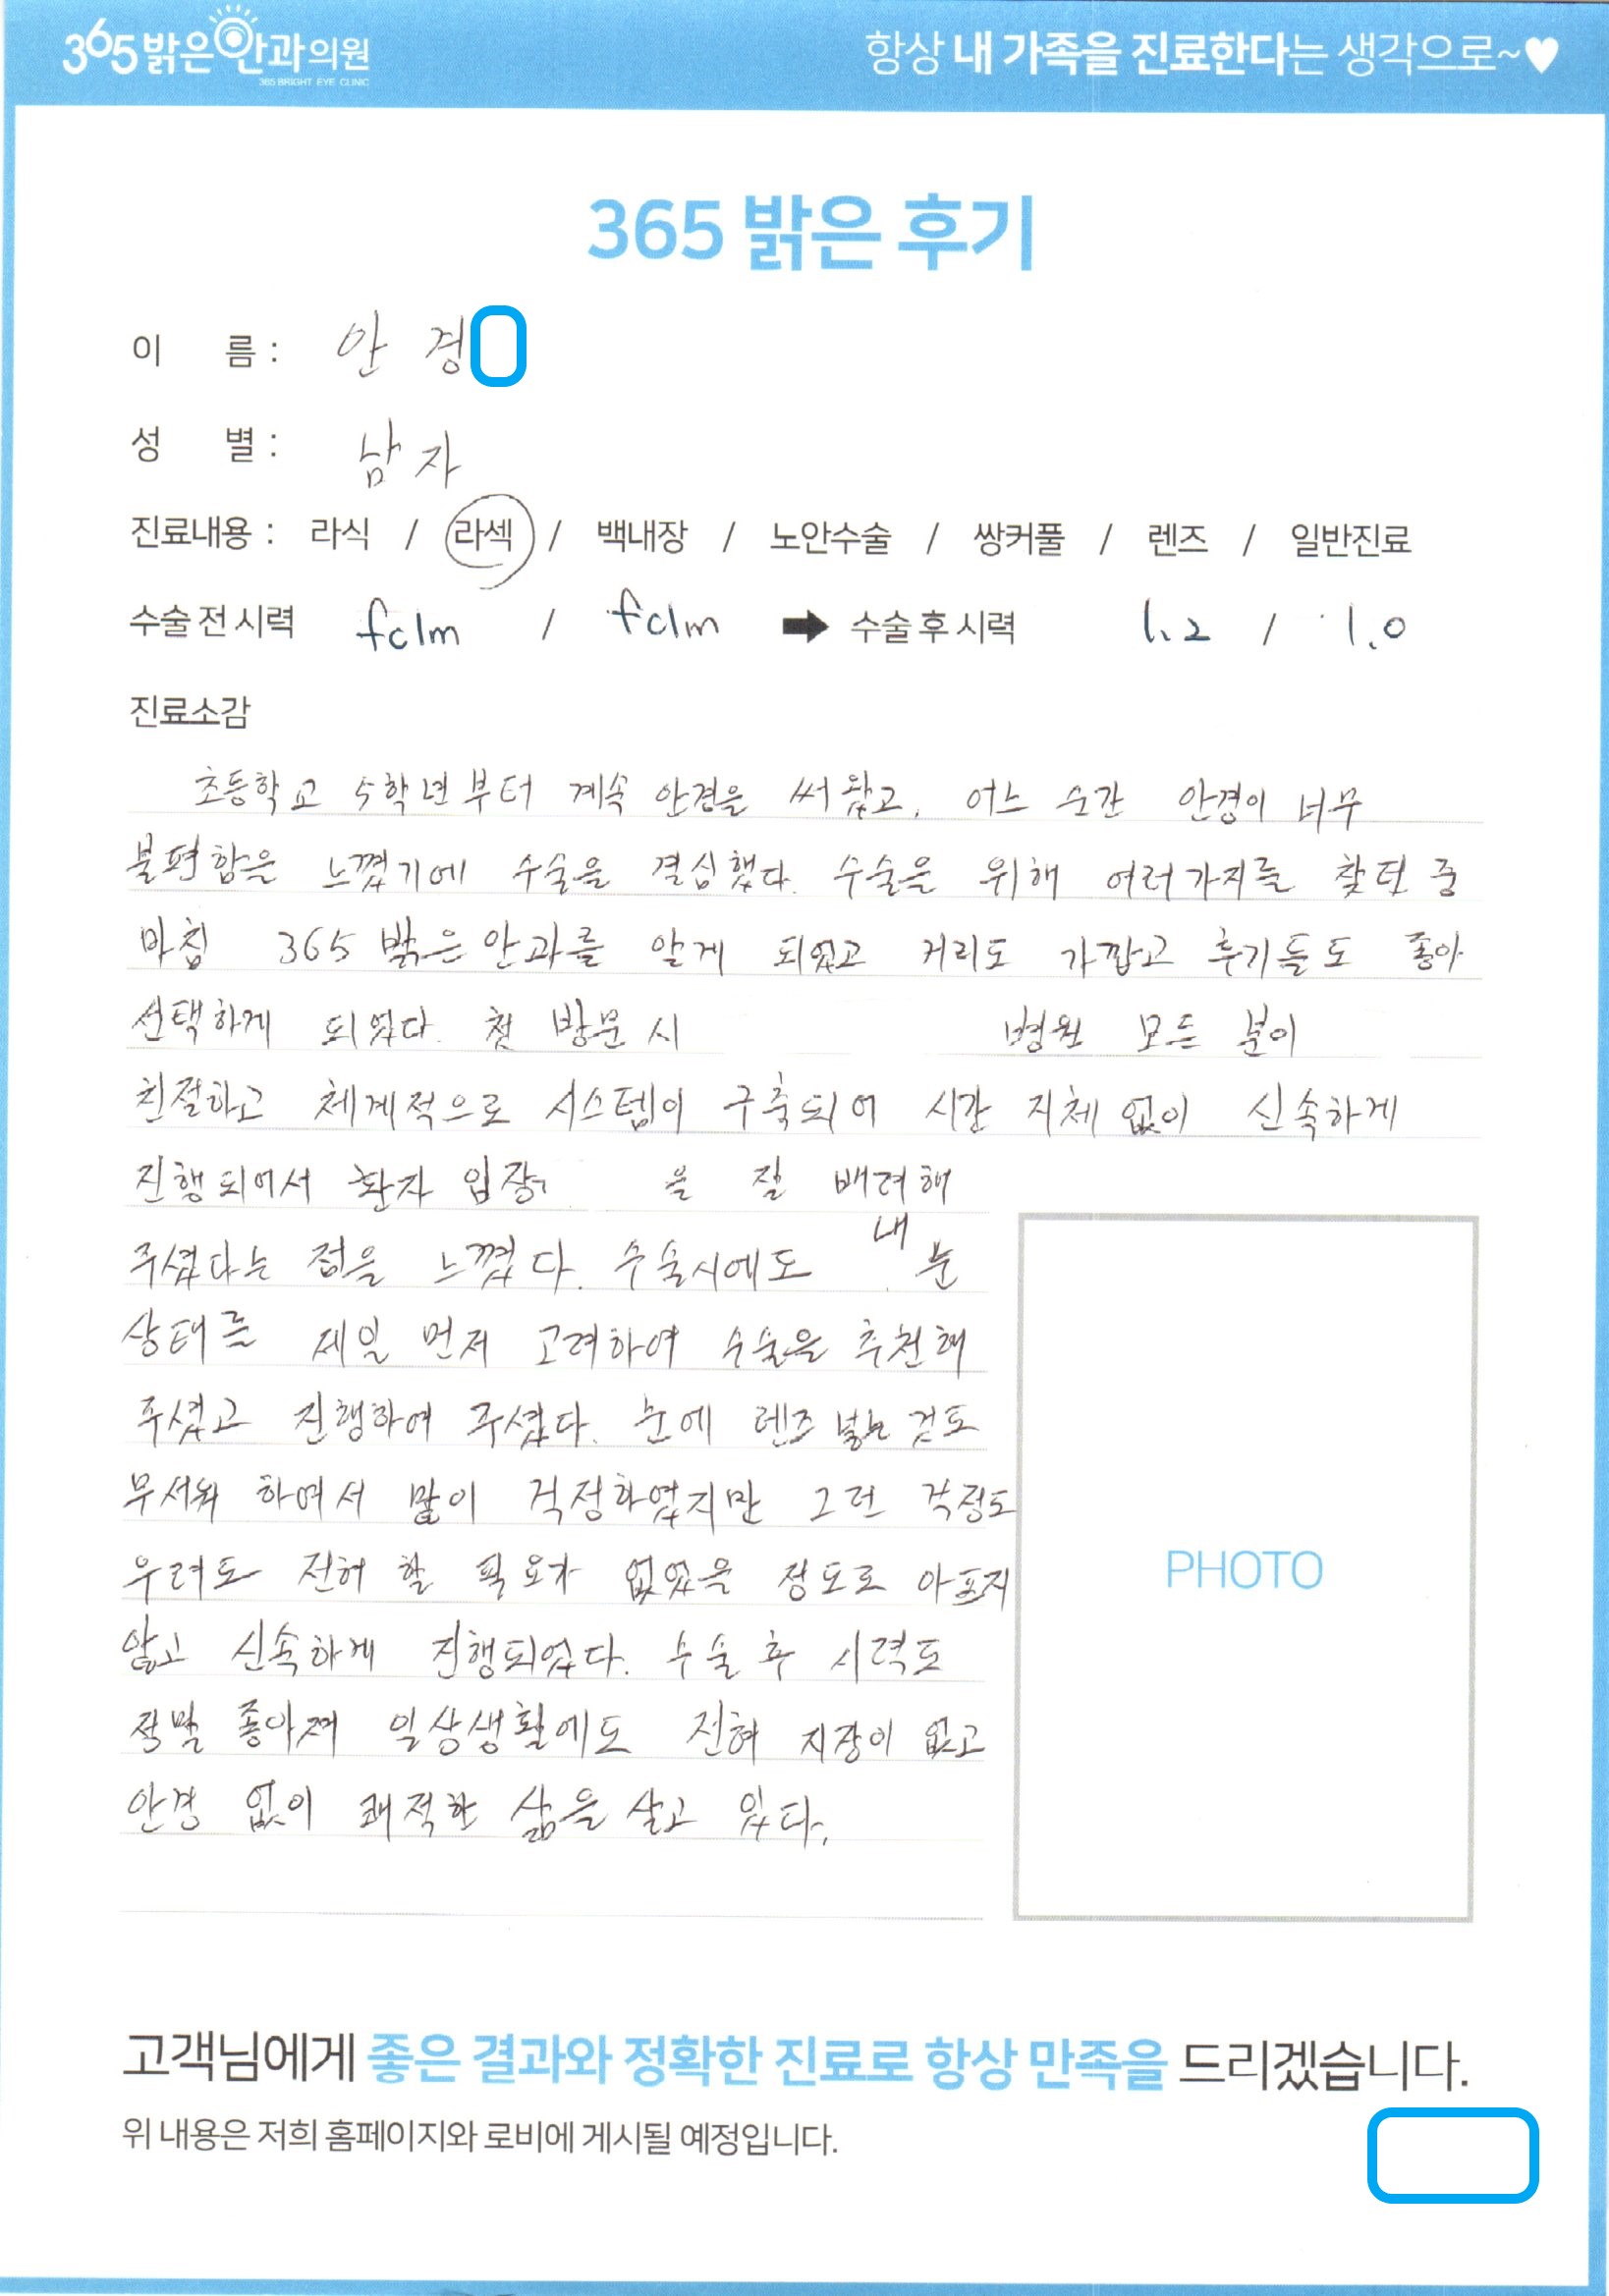 365밝은안과의원
365 BRIGHT EYE CLINIC
항상 내 가족을 진료한다는 생각으로~♥
365 밝은 후기
이 름 : 안 경
성 별 : 남자
진료내용 : 라식 / 라섹 / 백내장 / 노안수술 / 쌍커풀 / 렌즈 / 일반진료
수술 전 시력 fclm / fclm ➡ 수술 후 시력 1.2 / 1.0
진료소감
초등학교 5학년부터 계속 안경을 써 왔고, 어느 순간 안경이 너무
불편함을 느꼈기에 수술을 결심했다. 수술을 위해 여러가지를 찾던 중
마침 365 밝은안과를 알게 되었고 거리도 가깝고 후기들도 좋아
선택하게 되었다. 첫 방문 시 병원 모든 분이
친절하고 체계적으로 시스템이 구축되어 시간 지체 없이 신속하게
진행되어서 환자 입장 을 잘 배려해
주셨다는 점을 느꼈다. 수술시에도 내 눈
상태를 제일 먼저 고려하여 수술을 추천해
주셨고 진행하여 주셨다. 눈에 렌즈 넣는 것도
무서워 하여서 많이 걱정하였지만 그런 걱정도
우려도 전혀 할 필요가 없었을 정도로 아프지
않고 신속하게 진행되었다. 수술 후 시력도
정말 좋아져 일상생활에도 전혀 지장이 없고
안경 없이 쾌적한 삶을 살고 있다.
PHOTO
고객님에게 좋은 결과와 정확한 진료로 항상 만족을 드리겠습니다.
위 내용은 저희 홈페이지와 로비에 게시될 예정입니다.